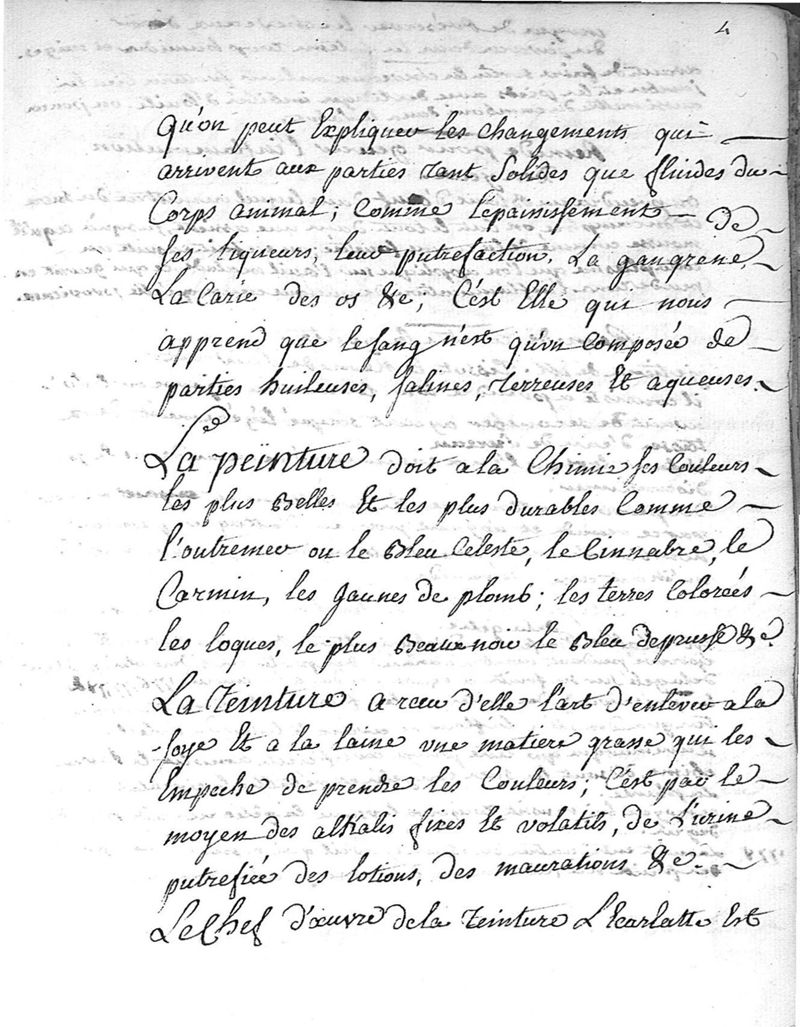 4
qu'on peut Expliquer les changements qui
arrivent aux parties tant Solides que fluides du
Corps animal; Comme l'epaississement de
ses liqueurs, leur putrefaction. La gangrene,
La Carie des os &c; C'est Elle qui nous
apprend que le sang n'est qu'un Composée de
parties huileuses, salines, terreuses Et aqueuses.
La peinture doit a la Chimie ses Couleurs
les plus Belles Et les plus durables Comme
l'outremer ou le Bleu Celeste, le Cinnabre, le
Carmin, les Jaunes de plomb; les terres Coloreés
les loques, le plus Beau noir le Bleu de prusse &c.
La Teinture a recu d'elle l'art d'enlever a la
soye Et a la laine une matiere grasse qui les
Empeche de prendre les Couleurs; C'est par le
moyen des alkalis fixes Et volatils, de l'urine
putrefiée des lotions, des maurations &c.
Le Chef d'œuvre de la Teinture L'Ecarlatte Est